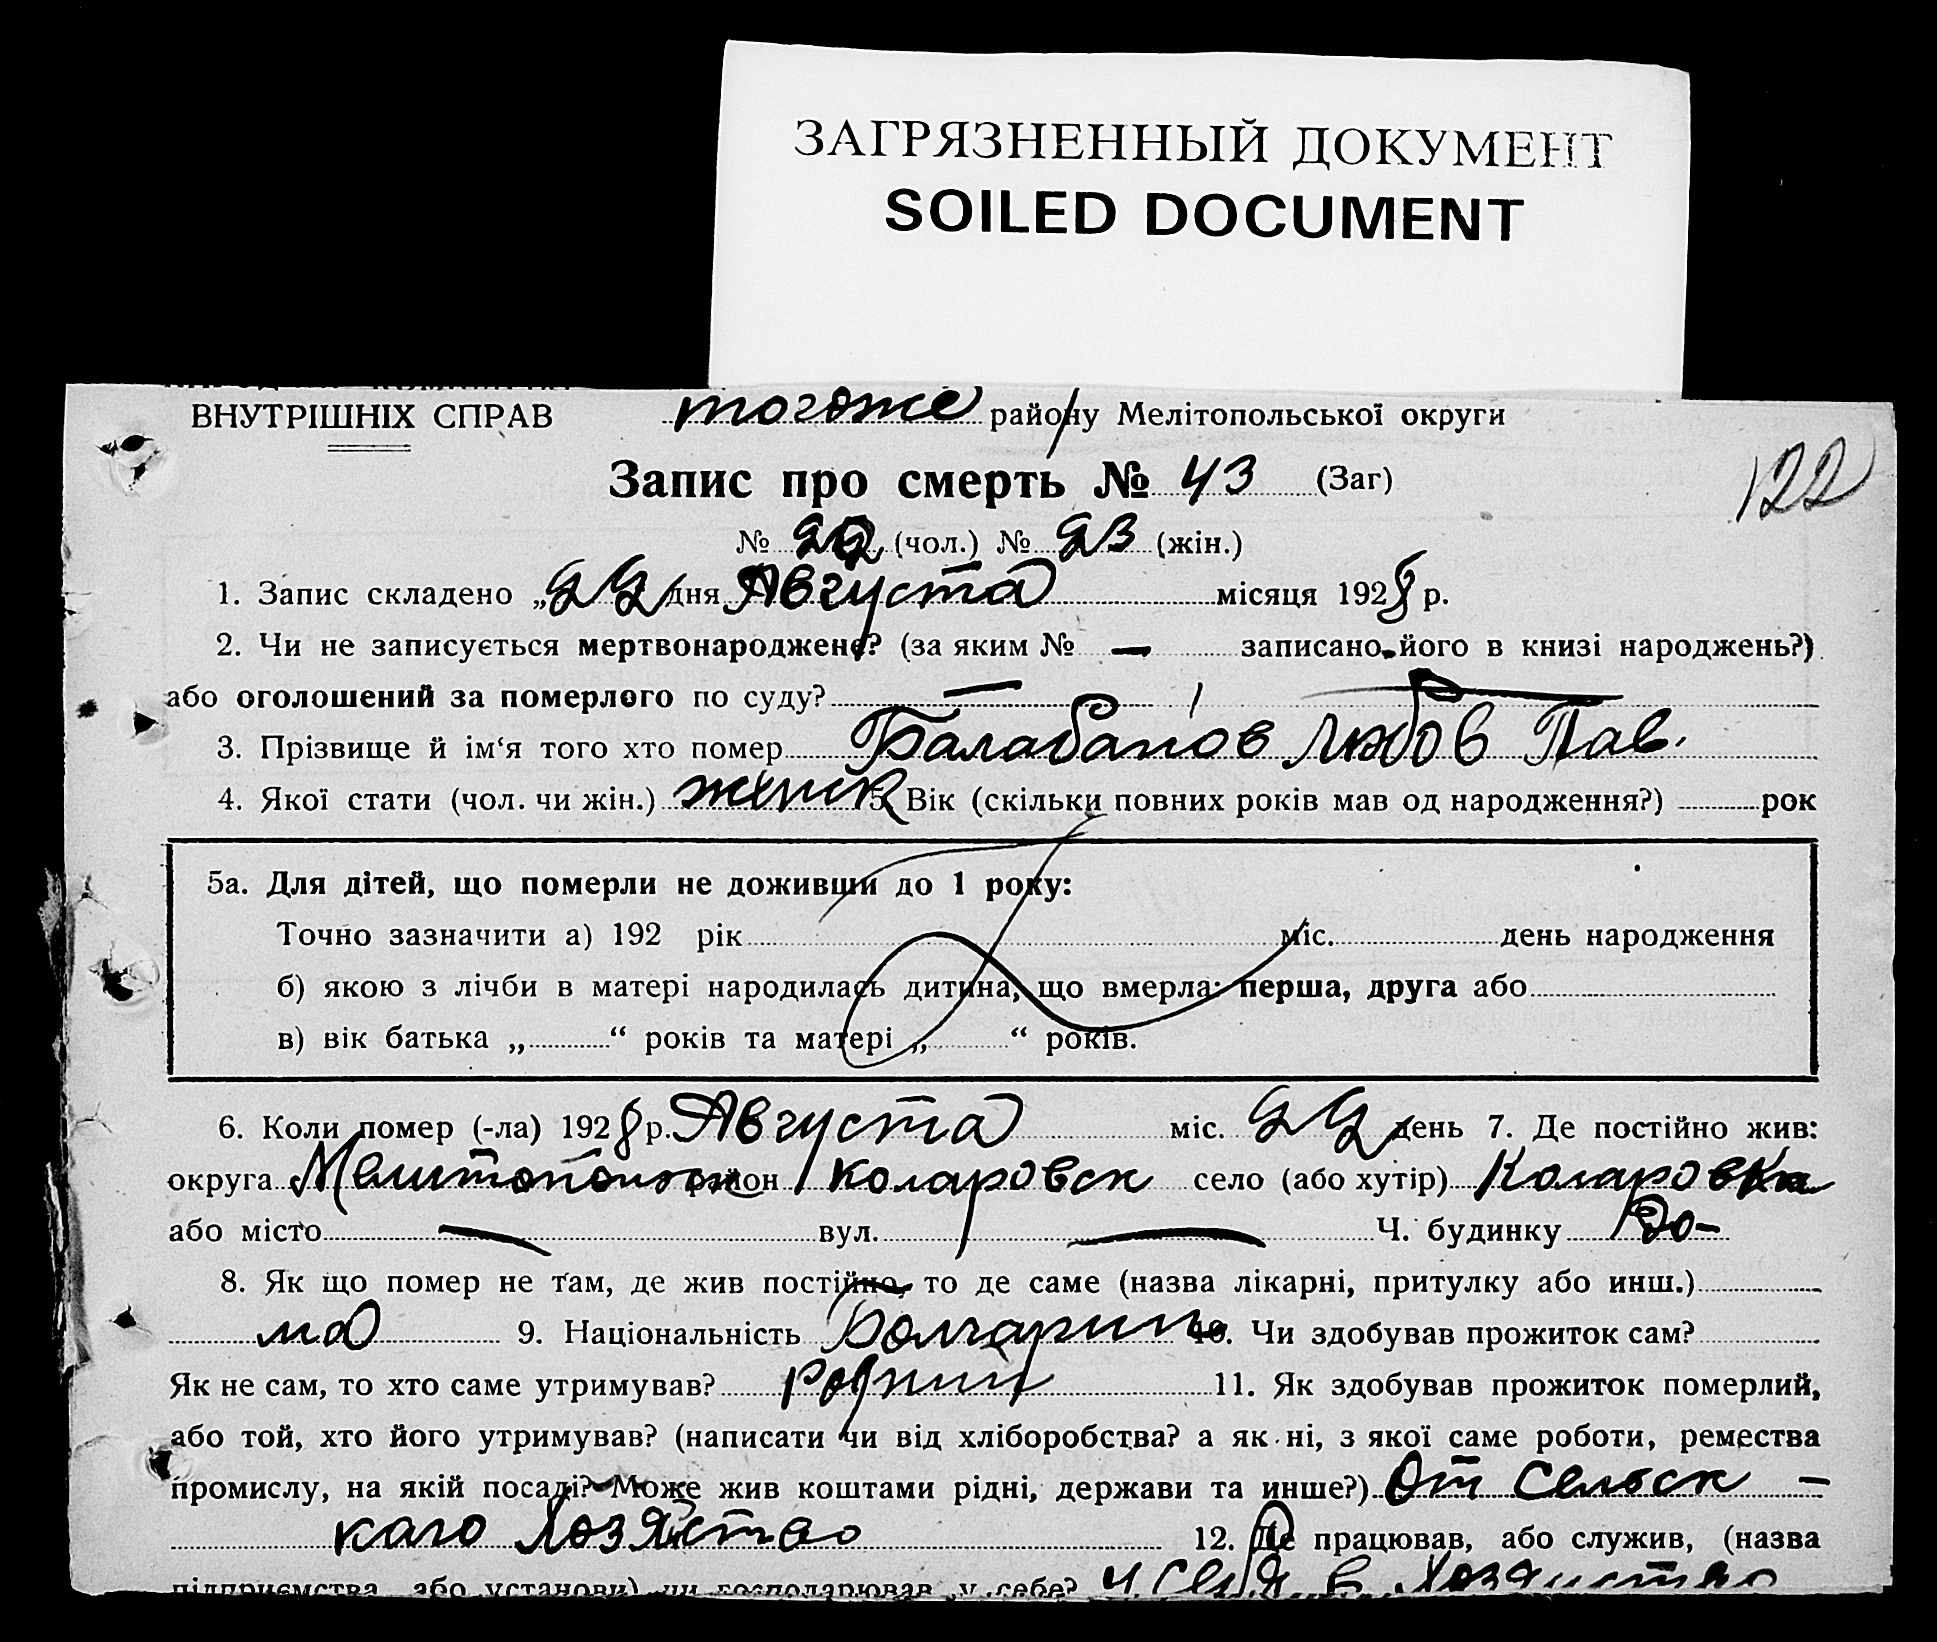 ЗАГРЯЗНЕННЫЙ ДОКУМЕНТ
SOILED DOCUMENT
ВНУТРІШНІХ СПРАВ тогоже району Мелітопольської округи
Запис про смерть № 43 (Заг)
122
№ 20 (чол.) № 23 (жін.)
1. Запис складено „22 дня Августа місяця 1928 р.
2. Чи не записується мертвонароджене? (за яким № — записано його в книзі народжень?)
або оголошений за померлого по суду? —
3. Прізвище й ім‘я того хто помер Балабанов Любов Пав.
4. Якої стати (чол. чи жін.) женск 5. Вік (скільки повних років мав од народження?) рок
5а. Для дітей, що померли не доживши до 1 року:
Точно зазначити а) 192 рік міс. день народження
б) якою з лічби в матері народилась дитина, що вмерла: перша, друга або
в) вік батька „ “ років та матері „ “ років.
6. Коли помер (-ла) 1928 р. Августа міс. 22 день 7. Де постійно жив:
округа Мелитопольск район Коларовск село (або хутір) Коларовка
або місто — вул. — Ч. будинку
8. Як що помер не там, де жив постійно, то де саме (назва лікарні, притулку або инш.)
9. Національність Болгарин 10. Чи здобував прожиток сам?
Як не сам, то хто саме утримував? 11. Як здобував прожиток померлий,
або той, хто його утримував? (написати чи від хліборобства? а як ні, з якої саме роботи, ремества
промислу, на якій посаді? Може жив коштами рідні, держави та инше?) От Сельск –
каго Хозяйство 12. Де працював, або служив, (назва
підприємства або установи) чи господарював у себе? У себя в Хозяйство